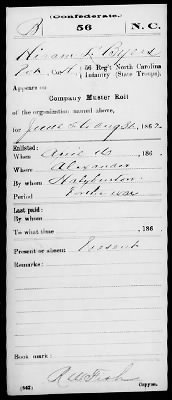 (Confederate.)
B 56 N.C.
Hiram F. Byers
Pvt, Co. H, 56 Reg't North Carolina
Infantry (State Troops).
Appears on
Company Muster Roll
of the organization named above,
for June & Aug 31, 1862.
Enlisted:
When 186 .
Where Alexander
By whom
Period
Last paid:
By whom
To what time , 186 .
Present or absent: Present
Remarks:
Book mark:
R W Fish
(642) Copyist.